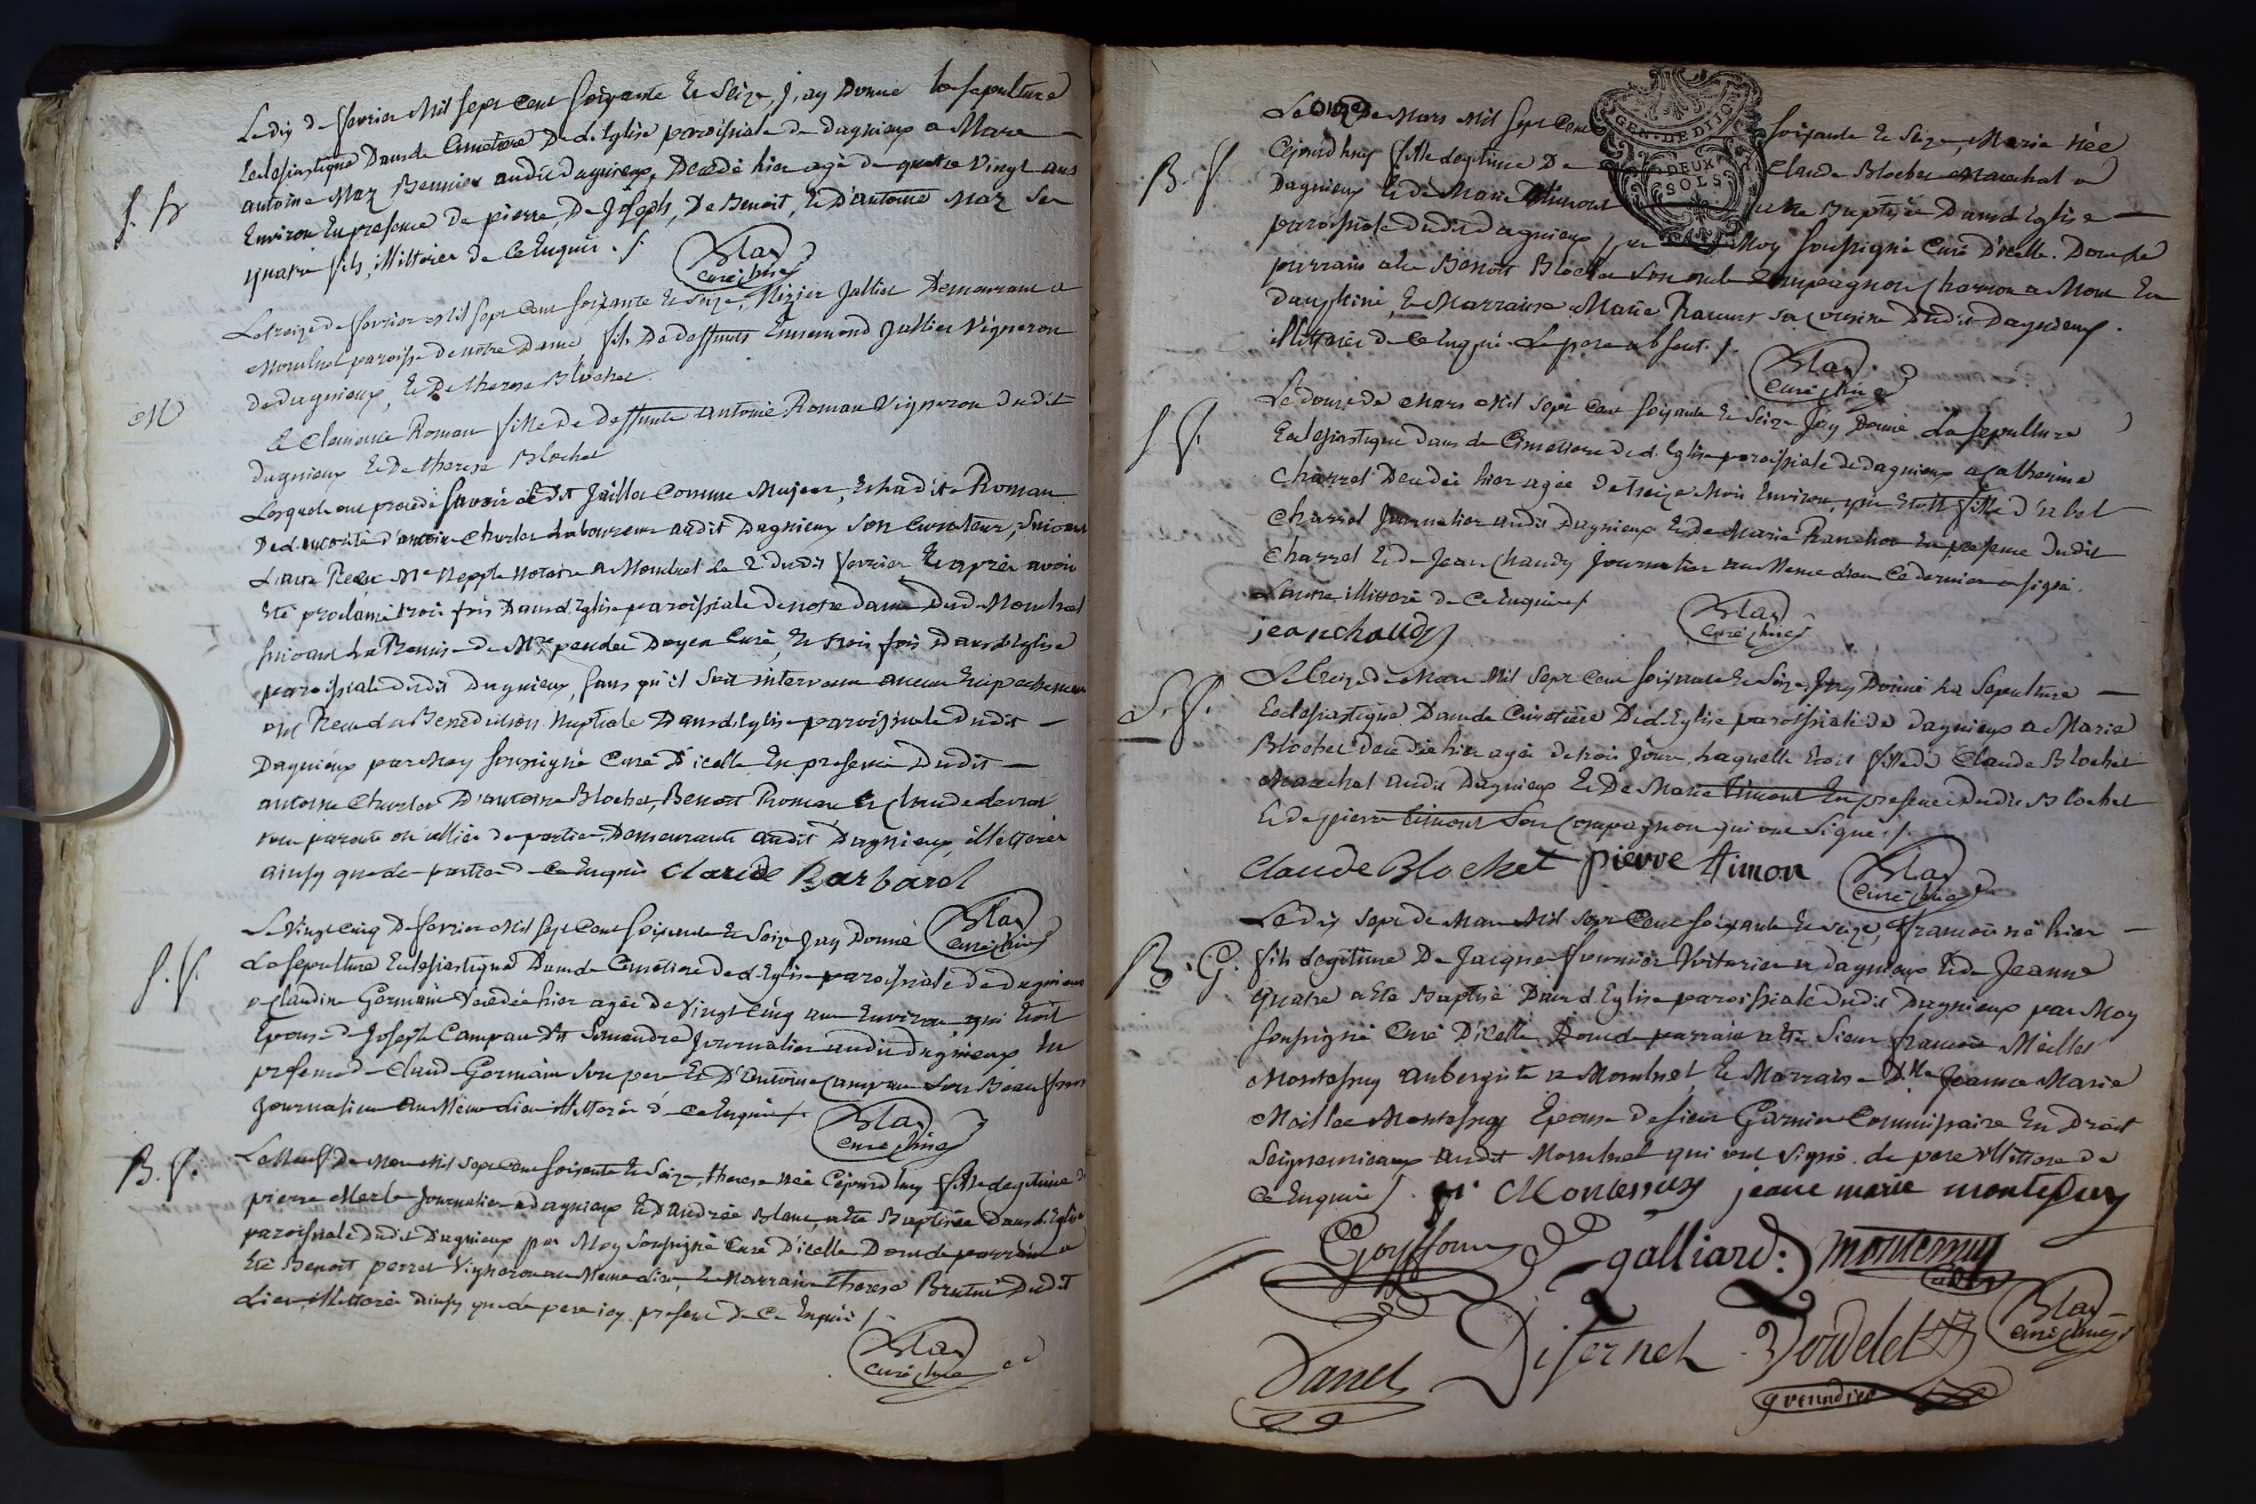 Le dix de fevrier mil sept cent soixante et seize, j'ay donné la sepulture
Eclesiastique dans le Cimetiere de l'Eglise paroissiale de dagnieux a Marc
S. h antoine Maz Bennier audit dagnieux, Decedé hier agé de quatre vingt ans
Environ En presence de pierre, De Joseph, De Benoit, et d'antoine Maz Ses
quatre fils, illitterés de ce Enquis ./.
Blas
curé
Le treize de fevrier mil sept cent soixante et seize, Nizier Jallier Demeurant a
Montluel paroisse de notre Dame fils De deffunts Ennemond Jallier Vigneron
M de dagnieux, et De therese Blochet
Et Clemence Roman fille de deffunte antoine Roman Vigneron dudit
dagnieux et De therese Blochet
Lesquels ont procedé Savoir ledit Jallier Comme Majeur, et ladite Roman
De l'autorité d'antoine Charlet Laboureur audit Dagnieux Son Curateur, Suivant
L'acte Recu Me Nepple Notaire a Montluel Le 2 dudit fevrier Et après avoir
Eté proclamé trois fois Dans l'Eglise paroissiale de notre dame Dud. Montluel
Suivant La Remise de Mre pender Doyen Curé, et trois fois Dans l'Eglise
paroissiale dudit Dagnieux, Sans qu'il Soit intervenu aucun Empechement
ont Receu la Benediction Nuptiale Dans l'Eglise paroissiale dudit
Dagnieux par Moy Soussigné Curé D'icelle En presence Dudit
antoine Charlet D'antoine Blochet, Benoit Roman et Claude
tous parents ou alliés de parties Demeurants audit Dagnieux, illetterés
ainsy que les parties de ce Enquis Claude Barbarel
Le Vingt cinq De fevrier mil sept cent soixante et seize j'ay Donné
Blas
curé
S. f. La sepulture Eclesiastique Dans le Cimetiere de l'Eglise paroissiale de dagnieux
a Claudine Germain Decedée hier agée de Vingt cinq ans Environ, qui Etoit
Epouse de Joseph Campan dit Journalier audit dagnieux En
presence de Claude Germain Son pere et D'antoine Campan Son Beau frere
Journaliers au Meme Lieu illitterés de ce Enquis ./.
Blas
curé
B. f. Le Neuf De Mars Mil sept cent soixante et seize, therese née Cejourd'huy fille legitime de
pierre Merle Journalier a dagnieux et D'andrée Blanc, a Eté Baptisée Dans l'Eglise
paroissiale dudit Dagnieux par Moy Soussigné Curé D'icelle Dont le parrain a
Eté Benoit perret Vigneron au Meme Lieu, et Marraine therese Dudit
Lieu, illitterés ainsy que le pere icy present De Ce Enquis ./.
Blas
curé
GEN. DE DIJON
DEUX SOLS
Le onze de Mars Mil Sept Cent soixante et Seize, Marie née
B. f Cejourd'huy fille legitime De Claude Blochet Marechal a
Dagnieux et de Marie timont a Eté Baptisée Dans l'Eglise
paroissiale dudit dagnieux par Moy soussigné Curé D'icelle. Dont le
parrain a Eté Benoit Blochet Son oncle Compagnon Charron a en
dauphiné, et Marraine Marie sa cousine dudit Dagnieux.
illitterés de ce Enquis. Le pere absent ./.
Blas
curé
Le douze de Mars Mil Sept Cent soixante et Seize J'ay Donné La sepulture
S. f. Eclesiastique dans le Cimetiere de l'Eglise paroissiale de dagnieux a Catherine
Charrel Decedée hier agée de treize Mois Environ, qui Etoit fille d'abel
Charrel Journalier audit Dagnieux et De Marie Planchon En presence dudit
Charrel et de Jean Chaudy Journalier au Meme Lieu Ce dernier a signé.
L'autre illitteré de Ce Enquis ./.
jean chaudy
Blas
curé
Le treize de Mars Mil Sept Cent soixante et Seize, J'ay Donné La Sepulture
S. f. Eclesiastique Dans le Cimetiere De l'Eglise paroissiale de dagnieux a Marie
Blochet decedée hier agée de trois jours, Laquelle Etoit fille de Claude Blochet
Marechal audit Dagnieux et De Marie timont En presence dudit Blochet
et de pierre timont Son Compagnon qui ont Signé ./.
Claude Blochet pierre timon
Blas
curé
Le dix Sept de Mars Mil Sept Cent soixante et seize, François né hier
B. G. fils legitime De Jacques fournier Voiturier a dagnieux et de Jeanne
quatre a Eté Baptisé Dans l'Eglise paroissiale dudit Dagnieux par Moy
soussigné Curé D'icelle Dont le parrain a Eté Sieur francois Meillet
Montessuy aubergiste a Montluel, et Marraine Dlle Jeanne Marie
Meillet Montessuy Epouse de sieur Garnier Commissaire En Droit
Seigneuriaux audit Montluel qui ont Signé. Le pere illitteré de
Ce Enquis ./. Montessuy jeane marie montessuy
Goyffon galliard montessuy
Blas
curé
Danet Disernet Bordelet